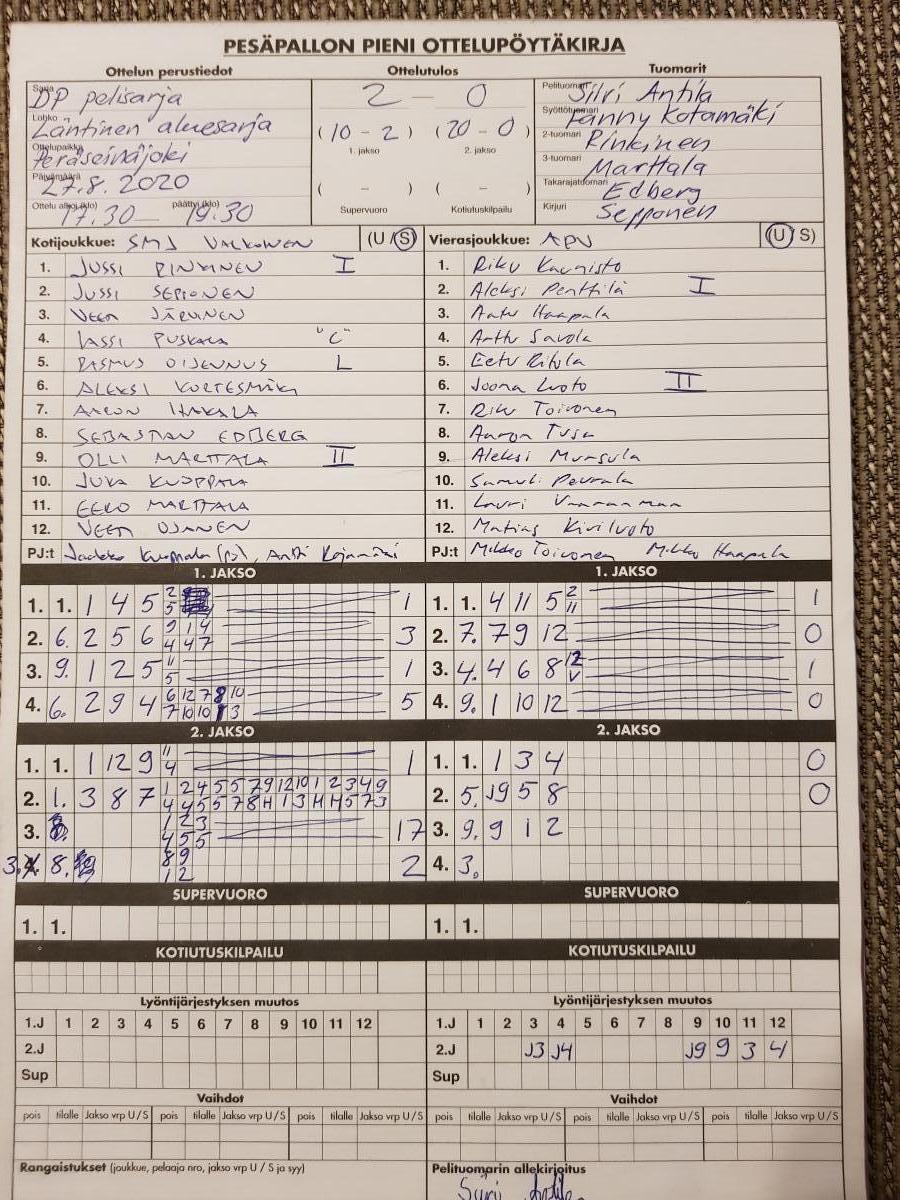 PESÄPALLON PIENI OTTELUPÖYTÄKIRJA
Ottelun perustiedot Ottelutulos Tuomarit
Sarja DP pelisarja
Lohko Läntinen aluesarja
Ottelupaikka Peräseinäjoki
Päivämäärä 27.8.2020
Ottelu alkoi (klo) 17.30 päättyi (klo) 19.30
2 - 0
(10 - 2) (20 - 0)
1. jakso 2. jakso
( - ) ( - )
Supervuoro Kotiutuskilpailu
Pelituomari Antila
Syöttötuomari Fanny Kotamäki
2-tuomari Rinkinen
3-tuomari Marttala
Takarajatuomari Edberg
Kirjuri Sepponen
Kotijoukkue: SMJ VALKOINEN (U/S)
1. JUSSI RINKINEN I
2. JUSSI SEPPONEN
3. VEETI JÄRVINEN
4. LASSI PUSKALA "C"
5. RASMUS OIJENNUS L
6. ALEKSI KORTESMÄKI
7. AARON HAKALA
8. SEBASTIAN EDBERG
9. OLLI MARTTALA II
10. JUKA KUOPPALA
11. EERO MARTTALA
12. VEETI OJANEN
PJ:t Jaakko Kuoppala (pj), Antti
Vierasjoukkue: APV (U/S)
1. Riku Kaunisto
2. Aleksi Penttilä I
3. Aatu Haapala
4. Arttu Savola
5. Eetu Ritola
6. Joona Luoto II
7. Riku Toivonen
8. Aaron Tusa
9. Aleksi Mursula
10. Samuli Peurala
11. Lauri Vaaranmaa
12. Matias Kiviluoto
PJ:t Mikko Toivonen Mikko Haapala
1. JAKSO
1. 1. 1 4 5 2 5 1
2. 6. 2 5 6 9 1 4 4 4 7 3
3. 9. 1 2 5 11 5 1
4. 6. 2 9 4 6 12 7 8 10 7 10 10 1 3 5
1. JAKSO
1. 1. 4 11 5 2 11 1
2. 7. 7 9 12 0
3. 4. 4 6 8 12 V 1
4. 9. 1 10 12 0
2. JAKSO
1. 1. 1 12 9 11 4 1
2. 1. 3 8 7 1 2 4 5 5 7 9 12 10 1 2 3 4 9
4 4 5 5 7 8 H 1 3 H H 5 7 3
3. 1 2 3 4 5 5 17
3. 8. 8 9 1 2 2
2. JAKSO
1. 1. 1 3 4 0
2. 5. J9 5 8 0
3. 9. 9 1 2
4. 3.
SUPERVUORO
1. 1.
SUPERVUORO
1. 1.
KOTIUTUSKILPAILU
KOTIUTUSKILPAILU
Lyöntijärjestyksen muutos
1.J 1 2 3 4 5 6 7 8 9 10 11 12
2.J
Sup
Lyöntijärjestyksen muutos
1.J 1 2 3 4 5 6 7 8 9 10 11 12
2.J J3 J4 J9 9 3 4
Sup
Vaihdot
pois tilalle Jakso vrp U/S pois tilalle Jakso vrp U/S pois tilalle Jakso vrp U/S
Vaihdot
pois tilalle Jakso vrp U/S pois tilalle Jakso vrp U/S pois tilalle Jakso vrp U/S
Rangaistukset (joukkue, pelaaja nro, jakso vrp U / S ja syy)
Pelituomarin allekirjoitus